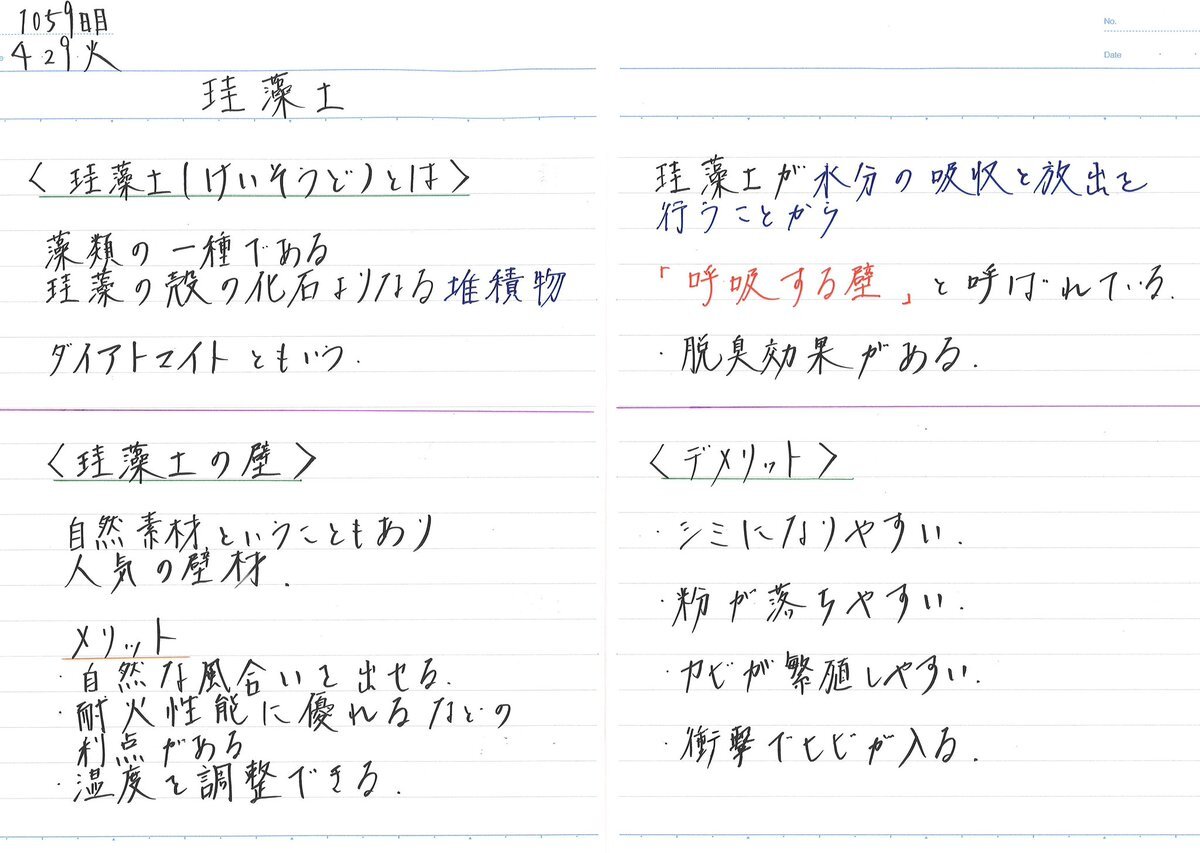 1059日目
4 29 火
珪藻土
〈珪藻土(けいそうど)とは〉
藻類の一種である
珪藻の殻の化石よりなる堆積物
ダイアトマイトともいう.
〈珪藻土の壁〉
自然素材ということもあり
人気の壁材.
メリット
・自然な風合いを出せる.
・耐火性能に優れるなどの
利点がある
・温度を調整できる.
No.
Date
珪藻土が水分の吸収と放出を
行うことから
「呼吸する壁」と呼ばれている.
・脱臭効果がある.
〈デメリット〉
・シミになりやすい.
・粉が落ちやすい.
・カビが繁殖しやすい.
・衝撃でヒビが入る.